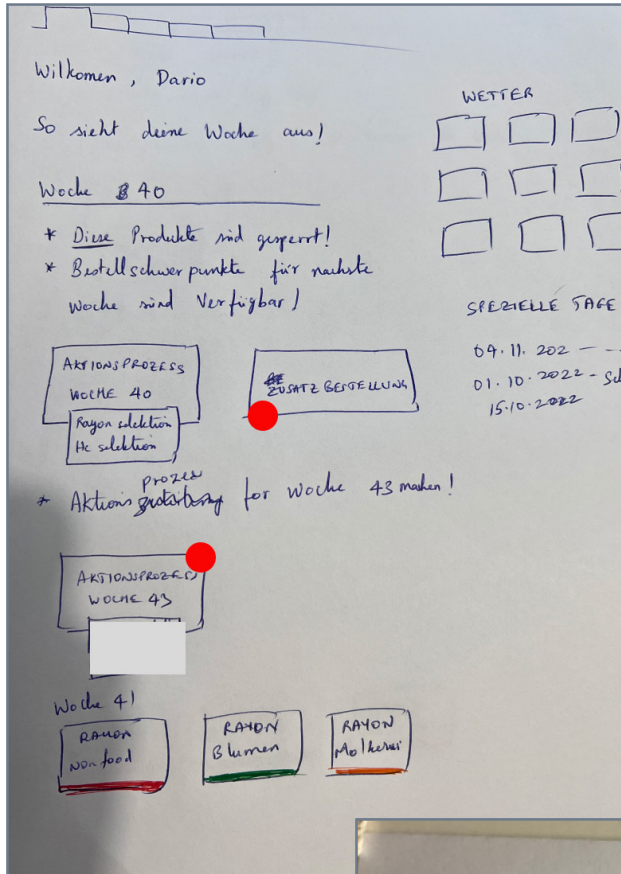 Wilkomen, Dario
So sieht deine Woche aus!
Woche 40
* Diese Produkte sind gesperrt!
* Bestellschwerpunkte für nachste
Woche sind Verfügbar!
AKTIONSPROZESS
WOCHE 40
Rayon selektion
Hc selektion
ZUSATZBESTELLUNG
* Aktions prozess for Woche 43 machen!
AKTIONSPROZESS
WOCHE 43
Woche 41
RAYON
Non food
RAYON
Blumen
RAYON
Molkerei
WETTER
SPEZIELLE TAGE
04.11.202 - -
01.10.2022 -
15.10.2022